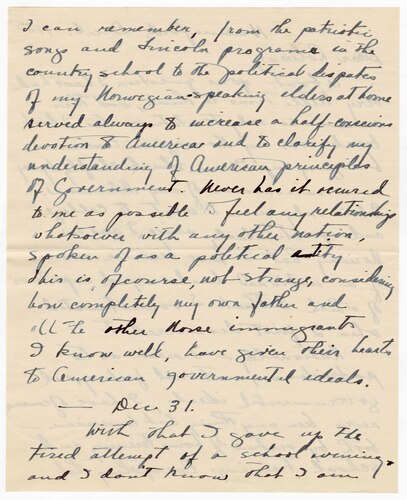 I can remember, from the patriotic
songs and Lincoln programs in the
country school to the political disputes
of my Norwegian-speaking elders at home
served always to increase a half-conscious
devotion to America and to clarify my
understanding of American principles
of Government. Never has it occured
to me as possible to feel any relationship
whatsoever with any other nation,
spoken of as a political entity
This is, of course, not strange, considering
how completely my own father and
all the other Norse immigrants
I know well, have given their hearts
to American governmental ideals.
— Dec 31.
With that I gave up the
tired attempt of a school evening,
and I dont know that I am